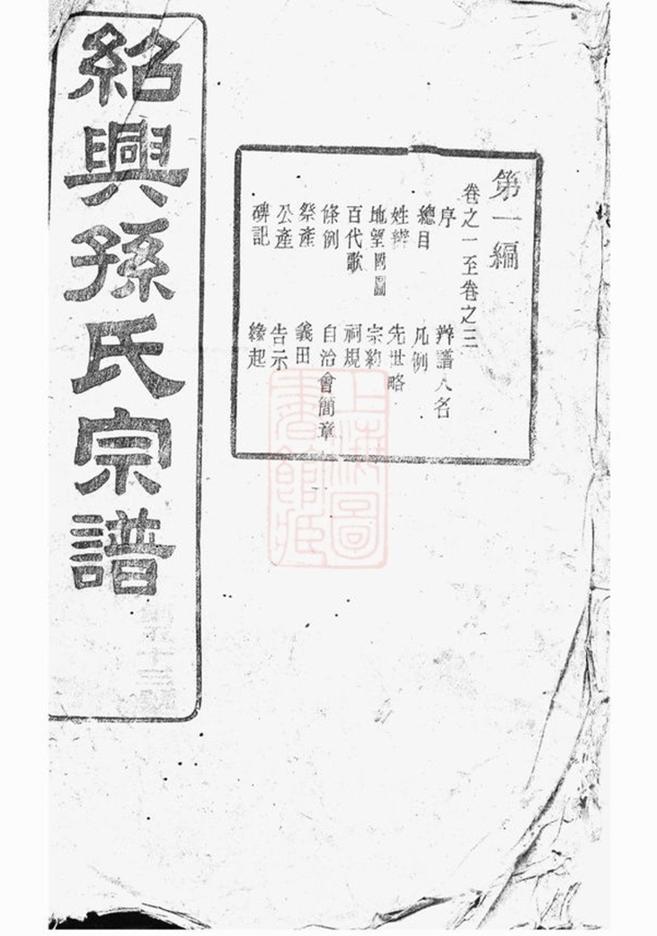 紹興孫氏宗譜
第一編
卷之一至卷之三
序 辦譜人名
總目 凡例
姓辨 先世略
地望國圖 宗約
百代歌 祠規
條例 自治會簡章
祭產 義田
公產 告示
碑記 緣起
上海圖書館藏